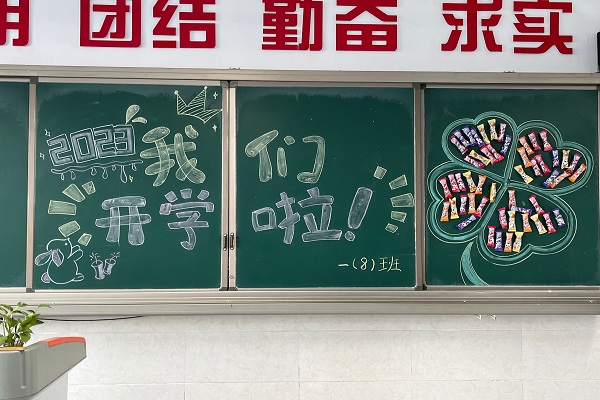 团结 勤奋 求实
2023 我们
开学啦!
一(8)班